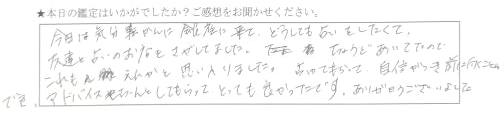 ★本日の鑑定はいかがでしたか？ご感想をお聞かせください。
今日は気分転かんに 来て、どうしても占いをしたくて、
友達と占いのお店をさがしてました。 ちょうどあいてたので
これも えんかと思い入りました。 占ってもらって、自信がつき前に向くことが
でき、アドバイスもちゃんとしてもらって、とっても良かったです。ありがとうございました